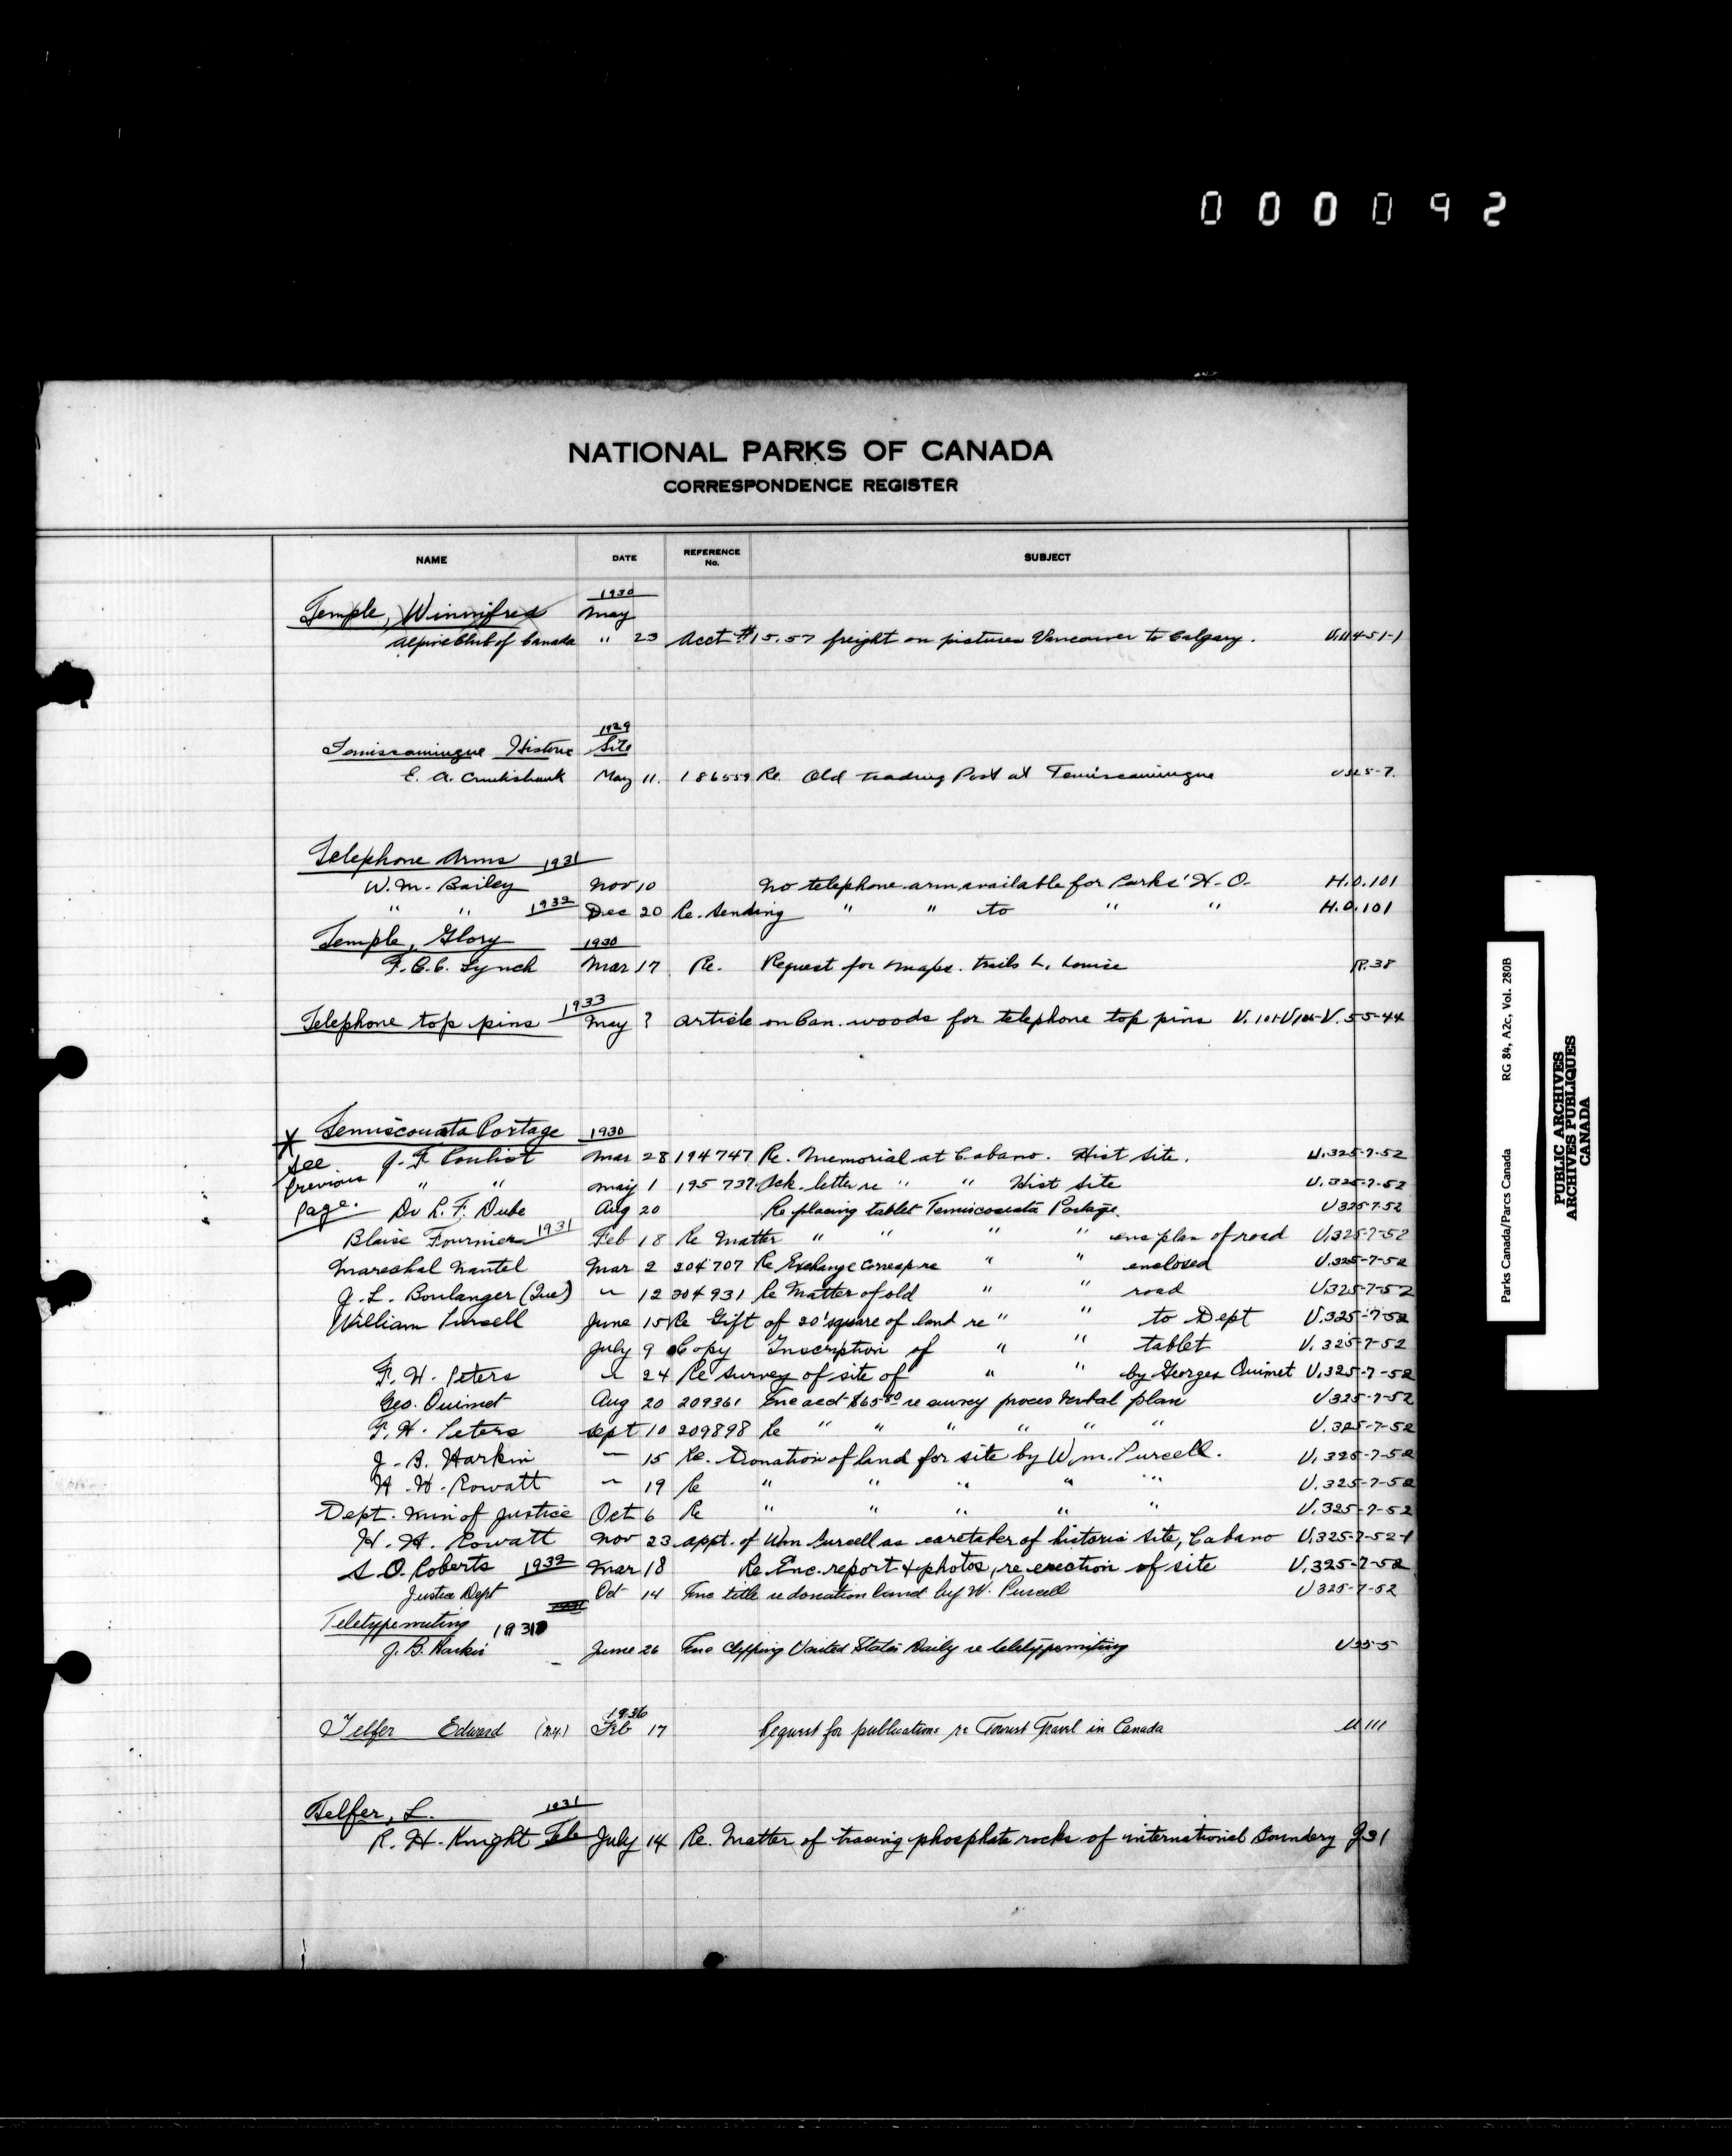 000092
NATIONAL PARKS OF CANADA
CORRESPONDENCE REGISTER
NAME DATE REFERENCE No. SUBJECT
1930
Temple, Winnifred May
Alpine Club of Canada " 23 Acct #15.57 freight on pictures Vancouver to Calgary. U.114-51-1
1929
Temiscamingue Historic Site
E. A. Cruikshank May 11. 186559 Re. Old trading Post at Temiscamingue U325-7.
Telephone Arms 1931
W. M. Bailey Nov 10 No telephone arm available for Parks' H.O. H.O.101
" " 1932 Dec 20 Re. Sending " " to " " H.O.101
Temple, Glory 1930
F.C.C. Lynch Mar 17 Re. Request for maps. trails L. Louise R.38
Telephone top pins 1933 May ? Article on Can. woods for telephone top pins V.55-44
* Temiscouata Portage 1930
See J. F. Pouliot Mar 28 194747 Re. Memorial at Cabano. Hist site. U.325-7-52
previous " " May 1 195737 Ack. letter re " " Hist site U.325-7-52
page. Dr L. F. Dube Aug 20 Re placing tablet Temiscouata Portage. U325-7-52
Blaise Fournier 1931 Feb 18 Re Matter " " " " enc plan of road U.325-7-52
Marechal Nantel Mar 2 204707 Re Exchange Corresp re " " enclosed U.325-7-52
J. L. Boulanger (Que) " 12 204931 Re Matter of old " " road U325-7-52
William Pursell June 15 Re Gift of 20' square of land re " " to Dept U.325-7-52
July 9 Copy Inscription of " " tablet U.325-7-52
F. H. Peters " 24 Re survey of site of " " by Georges Ouimet U.325-7-52
Geo. Ouimet Aug 20 209361 Enc acct $65.00 re survey proces verbal plan U325-7-52
F. H. Peters Sept 10 209898 Re " " " " " " U.325-7-52
J. B. Harkin " 15 Re. Donation of land for site by Wm. Purcell. U.325-7-52
H. H. Rowatt " 19 Re " " " " " U.325-7-52
Dept. Min of Justice Oct 6 Re " " " " " U.325-7-52
H. H. Rowatt Nov 23 appt. of Wm Purcell as caretaker of historic site, Cabano U.325-7-52-1
S. O. Roberts 1932 Mar 18 Re Enc. report & photos, re erection of site U.325-7-52
Justice Dept Oct 14 Enc title re donation land by W. Purcell U325-7-52
Teletypewriting 1931
J. B. Harkin June 26 Enc Clipping United States Daily re teletypewriting U35-5
1936
Telfer Edward (N.Y.) Feb 17 Request for publications re Tourist Travel in Canada U111
Telfer, L. 1931
R. H. Knight Feb July 14 Re. Matter of tracing phosphate rocks of international Boundary J31
Parks Canada/Parcs Canada RG 84, A2c, Vol. 280B
PUBLIC ARCHIVES
ARCHIVES PUBLIQUES
CANADA